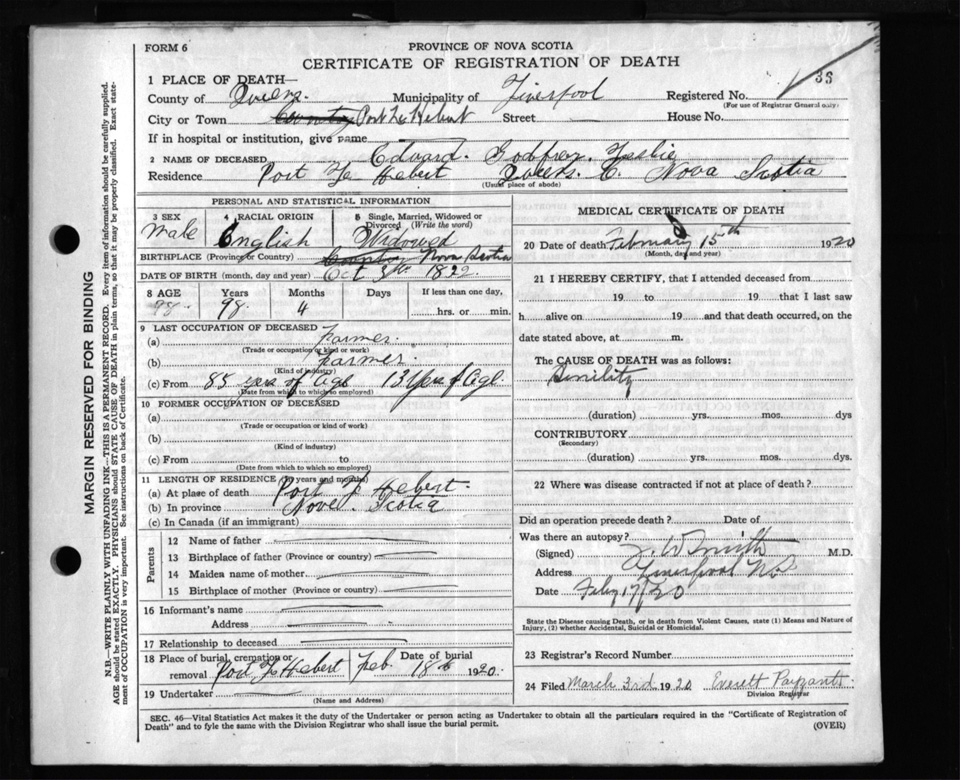 FORM 6
PROVINCE OF NOVA SCOTIA
CERTIFICATE OF REGISTRATION OF DEATH
33
1 PLACE OF DEATH—
County of Queens. Municipality of Liverpool Registered No.
(For use of Registrar General only)
City or Town County Port Le Hebert Street House No.
If in hospital or institution, give name
2 NAME OF DECEASED Edward. Godfrey. Leslie
Residence Port Le Hebert Queens. C. Nova Scotia
(Usual place of abode)
PERSONAL AND STATISTICAL INFORMATION
3 SEX 4 RACIAL ORIGIN 5 Single, Married, Widowed or Divorced (Write the word)
Male English Widowed
BIRTHPLACE (Province or Country) Country Nova Scotia
DATE OF BIRTH (month, day and year) Oct 1822.
8 AGE Years Months Days If less than one day,
98 98. 4 hrs. or min.
9 LAST OCCUPATION OF DECEASED
(a) Farmer.
(Trade or occupation or kind or work)
(b) Farmer.
(Kind of industry)
(c) From 85 years of Age 13 of Age.
(Date from which to which so employed)
10 FORMER OCCUPATION OF DECEASED
(a)
(Trade or occupation or kind of work)
(b)
(Kind of industry)
(c) From to
(Date from which to which so employed)
11 LENGTH OF RESIDENCE (In years and months)
(a) At place of death Port L Hebert.
(b) In province Nova. Scotia
(c) In Canada (if an immigrant)
Parents
12 Name of father
13 Birthplace of father (Province or country)
14 Maiden name of mother
15 Birthplace of mother (Province or country)
16 Informant's name
Address
17 Relationship to deceased
18 Place of burial, cremation or removal Port L Hebert Date of burial Feb 18th 1920.
19 Undertaker
(Name and Address)
MEDICAL CERTIFICATE OF DEATH
20 Date of death February 15th 1920
(Month, day and year)
21 I HEREBY CERTIFY, that I attended deceased from
19 to 19 that I last saw
h alive on 19 and that death occurred, on the
date stated above, at m.
The CAUSE OF DEATH was as follows:
Senility
(duration) yrs. mos. dys
CONTRIBUTORY
(Secondary)
(duration) yrs. mos. dys.
22 Where was disease contracted if not at place of death?
Did an operation precede death? Date of
Was there an autopsy?
(Signed) J. W Smith M.D.
Address Liverpool NS
Date Feby 17/20
State the Disease causing Death, or in death from Violent Causes, state (1) Means and Nature of
Injury, (2) whether Accidental, Suicidal or Homicidal.
23 Registrar's Record Number
24 Filed March 3rd 1920 Everett Payzant
Division Registrar
SEC. 46—Vital Statistics Act makes it the duty of the Undertaker or person acting as Undertaker to obtain all the particulars required in the "Certificate of Registration of
Death" and to fyle the same with the Division Registrar who shall issue the burial permit.
(OVER)
MARGIN RESERVED FOR BINDING
N.B.—WRITE PLAINLY WITH UNFADING INK—THIS IS A PERMANENT RECORD. Every item of information should be carefully supplied.
AGE should be stated EXACTLY. PHYSICIANS should STATE CAUSE OF DEATH in plain terms, so that it may be properly classified. Exact state-
ment of OCCUPATION is very important. See instructions on back of Certificate.